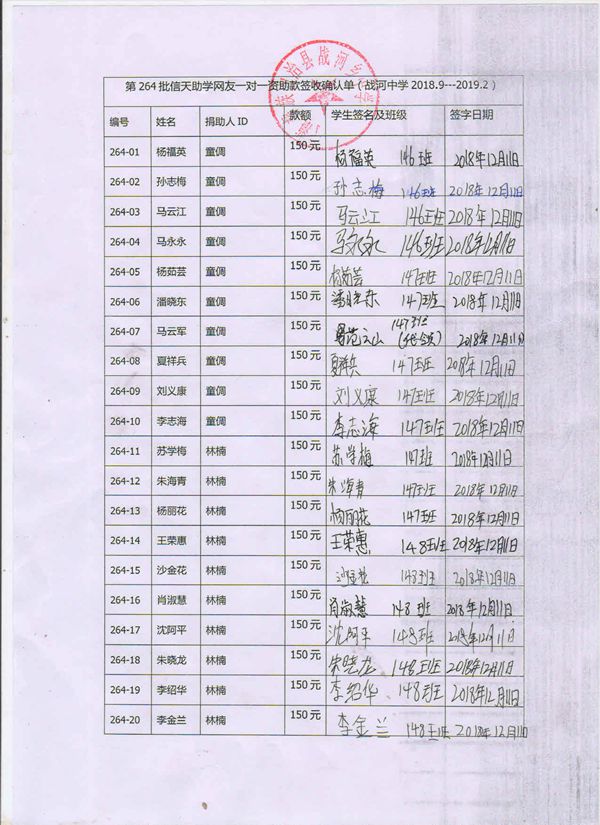 第 264 批信天助学网友一对一资助款签收确认单（战河中学 2018.9---2019.2）
编号 姓名 捐助人 ID 款额 学生签名及班级 签字日期
264-01 杨福英 童倜 150 元 杨福英 146班 2018年12月11日
264-02 孙志梅 童倜 150 元 孙志梅 146班 2018年12月11日
264-03 马云江 童倜 150 元 马云江 146班 2018年12月11日
264-04 马永永 童倜 150 元 马永永 146班 2018年12月11日
264-05 杨茹芸 童倜 150 元 杨茹芸 147班 2018年12月11日
264-06 潘晓东 童倜 150 元 潘晓东 147班 2018年12月11日
264-07 马云军 童倜 150 元 147班 2018年12月11日
264-08 夏祥兵 童倜 150 元 夏祥兵 147班 2018年12月11日
264-09 刘义康 童倜 150 元 刘义康 147班 2018年12月11日
264-10 李志海 童倜 150 元 李志海 147班 2018年12月11日
264-11 苏学梅 林楠 150 元 苏学梅 147班 2018年12月11日
264-12 朱海青 林楠 150 元 朱海青 147班 2018年12月11日
264-13 杨丽花 林楠 150 元 杨丽花 147班 2018年12月11日
264-14 王荣惠 林楠 150 元 王荣惠 148班 2018年12月11日
264-15 沙金花 林楠 150 元 沙金花 148班 2018年12月11日
264-16 肖淑慧 林楠 150 元 肖淑慧 148班 2018年12月11日
264-17 沈阿平 林楠 150 元 沈阿平 148班 2018年12月11日
264-18 朱晓龙 林楠 150 元 朱晓龙 148班 2018年12月11日
264-19 李绍华 林楠 150 元 李绍华 148班 2018年12月11日
264-20 李金兰 林楠 150 元 李金兰 148班 2018年12月11日